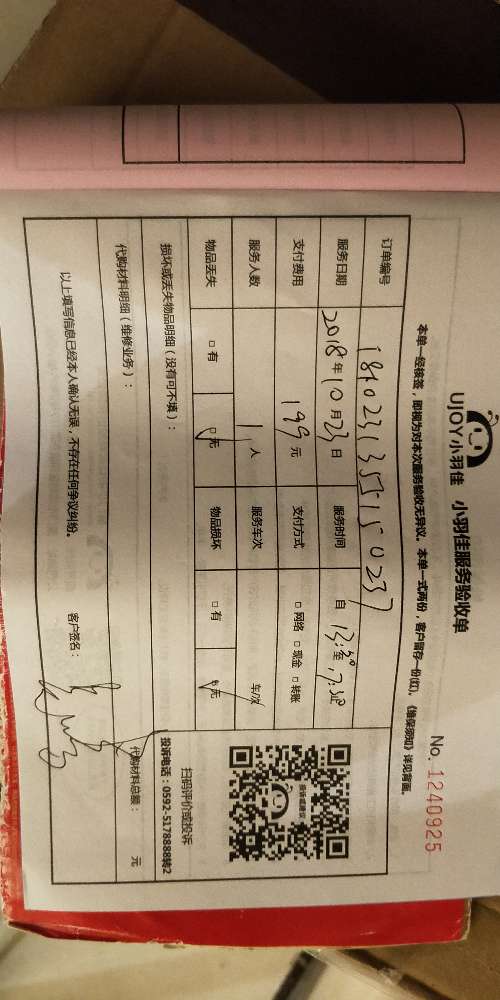 UJOY小羽佳 小羽佳服务验收单
No. 1240925
本单一经核签，即视为对本次服务验收无异议。本单一式两份，客户留存一份(红)。《维保须知》详见背面。
订单编号
服务日期 2018年10月23日 服务时间 自13:30至17:30止
支付费用 199元 支付方式 □网络 □现金 □转账
服务人数 1人 服务车次 车/次
物品丢失 □有 □无 物品损坏 □有 □无
投诉或建议
扫码评价或投诉
投诉电话：0592-5178888转2
损坏或丢失物品明细（没有可不填）：
代购材料明细（维修业务）： 代购材料总额： 元
以上填写信息已经本人确认无误，不存在任何争议纠纷。 客户签名：